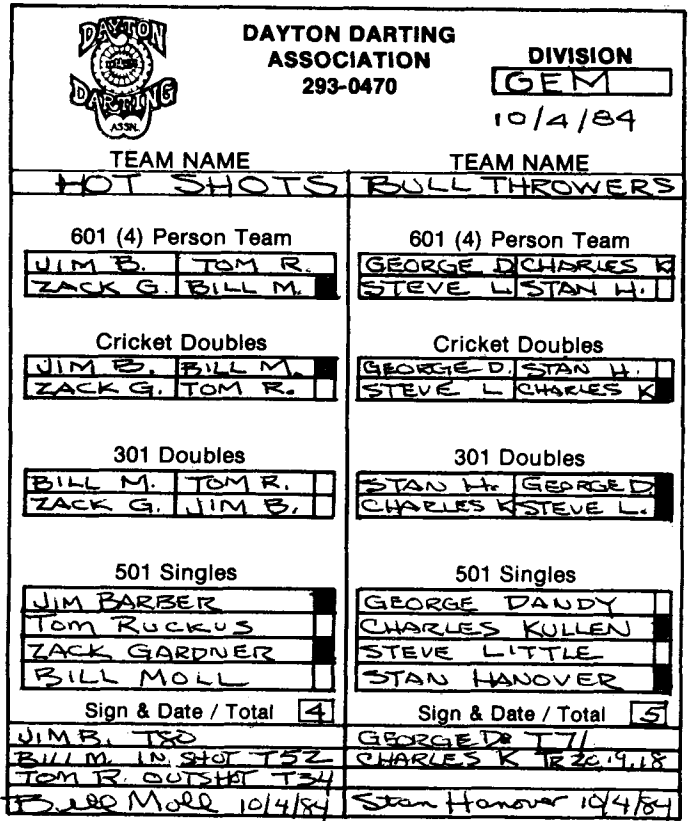 DAYTON DARTING ASSN.
DAYTON DARTING
ASSOCIATION
293-0470
DIVISION
GEM
10/4/84
TEAM NAME
HOT SHOTS
601 (4) Person Team
JIM B. TOM R.
ZACK G. BILL M.
Cricket Doubles
JIM B. BILL M.
ZACK G. TOM R.
301 Doubles
BILL M. TOM R.
ZACK G. JIM B.
501 Singles
JIM BARBER
TOM RUCKUS
ZACK GARDNER
BILL MOLL
Sign & Date / Total 4
JIM B. T80
BILL M. IN SHOT T52
TOM R. OUTSHOT T34
Bill Moll 10/4/84
TEAM NAME
BULL THROWERS
601 (4) Person Team
GEORGE D CHARLES K
STEVE L STAN H.
Cricket Doubles
GEORGE D. STAN H.
STEVE L CHARLES K
301 Doubles
STAN H. GEORGE D.
CHARLES K STEVE L.
501 Singles
GEORGE DANDY
CHARLES KULLEN
STEVE LITTLE
STAN HANOVER
Sign & Date / Total 5
GEORGE D. T71
CHARLES K TR 20, 19, 18
Stan Hanover 10/4/84